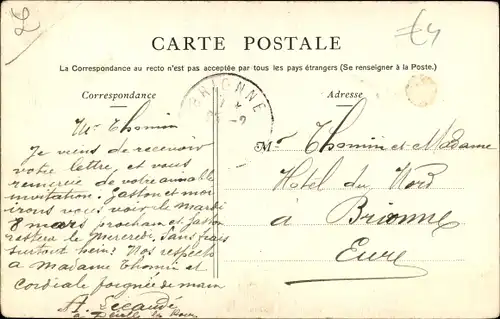 £4
CARTE POSTALE
La Correspondance au recto n'est pas acceptée par tous les pays étrangers (Se renseigner à la Poste.)
Correspondance
Adresse
BRIONNE
Mr Thomin
Je viens de recevoir
votre lettre, et vous
remercie de votre aimable
invitation. Gaston et moi
irons vous voir le Mardi
8 mars prochain et Gaston
restera le mercredi. Sans frais
surtout hein! Nos respects
a Madame Thomin et
cordiale poignée de main
A.
Mr Thomin et Madame
Hotel du Nord
à Brionne
Eure